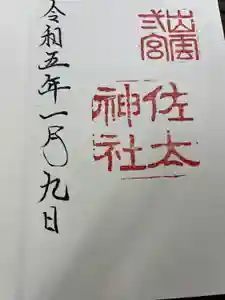 出雲
弐宮
佐太
神社
令和五年一月九日